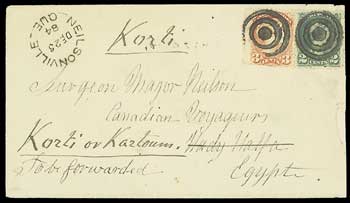 NEILSONVILLE
DE 23
84
QUE
Korti
3 CENTS
2 CENTS 2
Surgeon Major Neilson
Canadian Voyageurs
Korti or Kartoum. Wady Halfa
To be forwarded Egypt